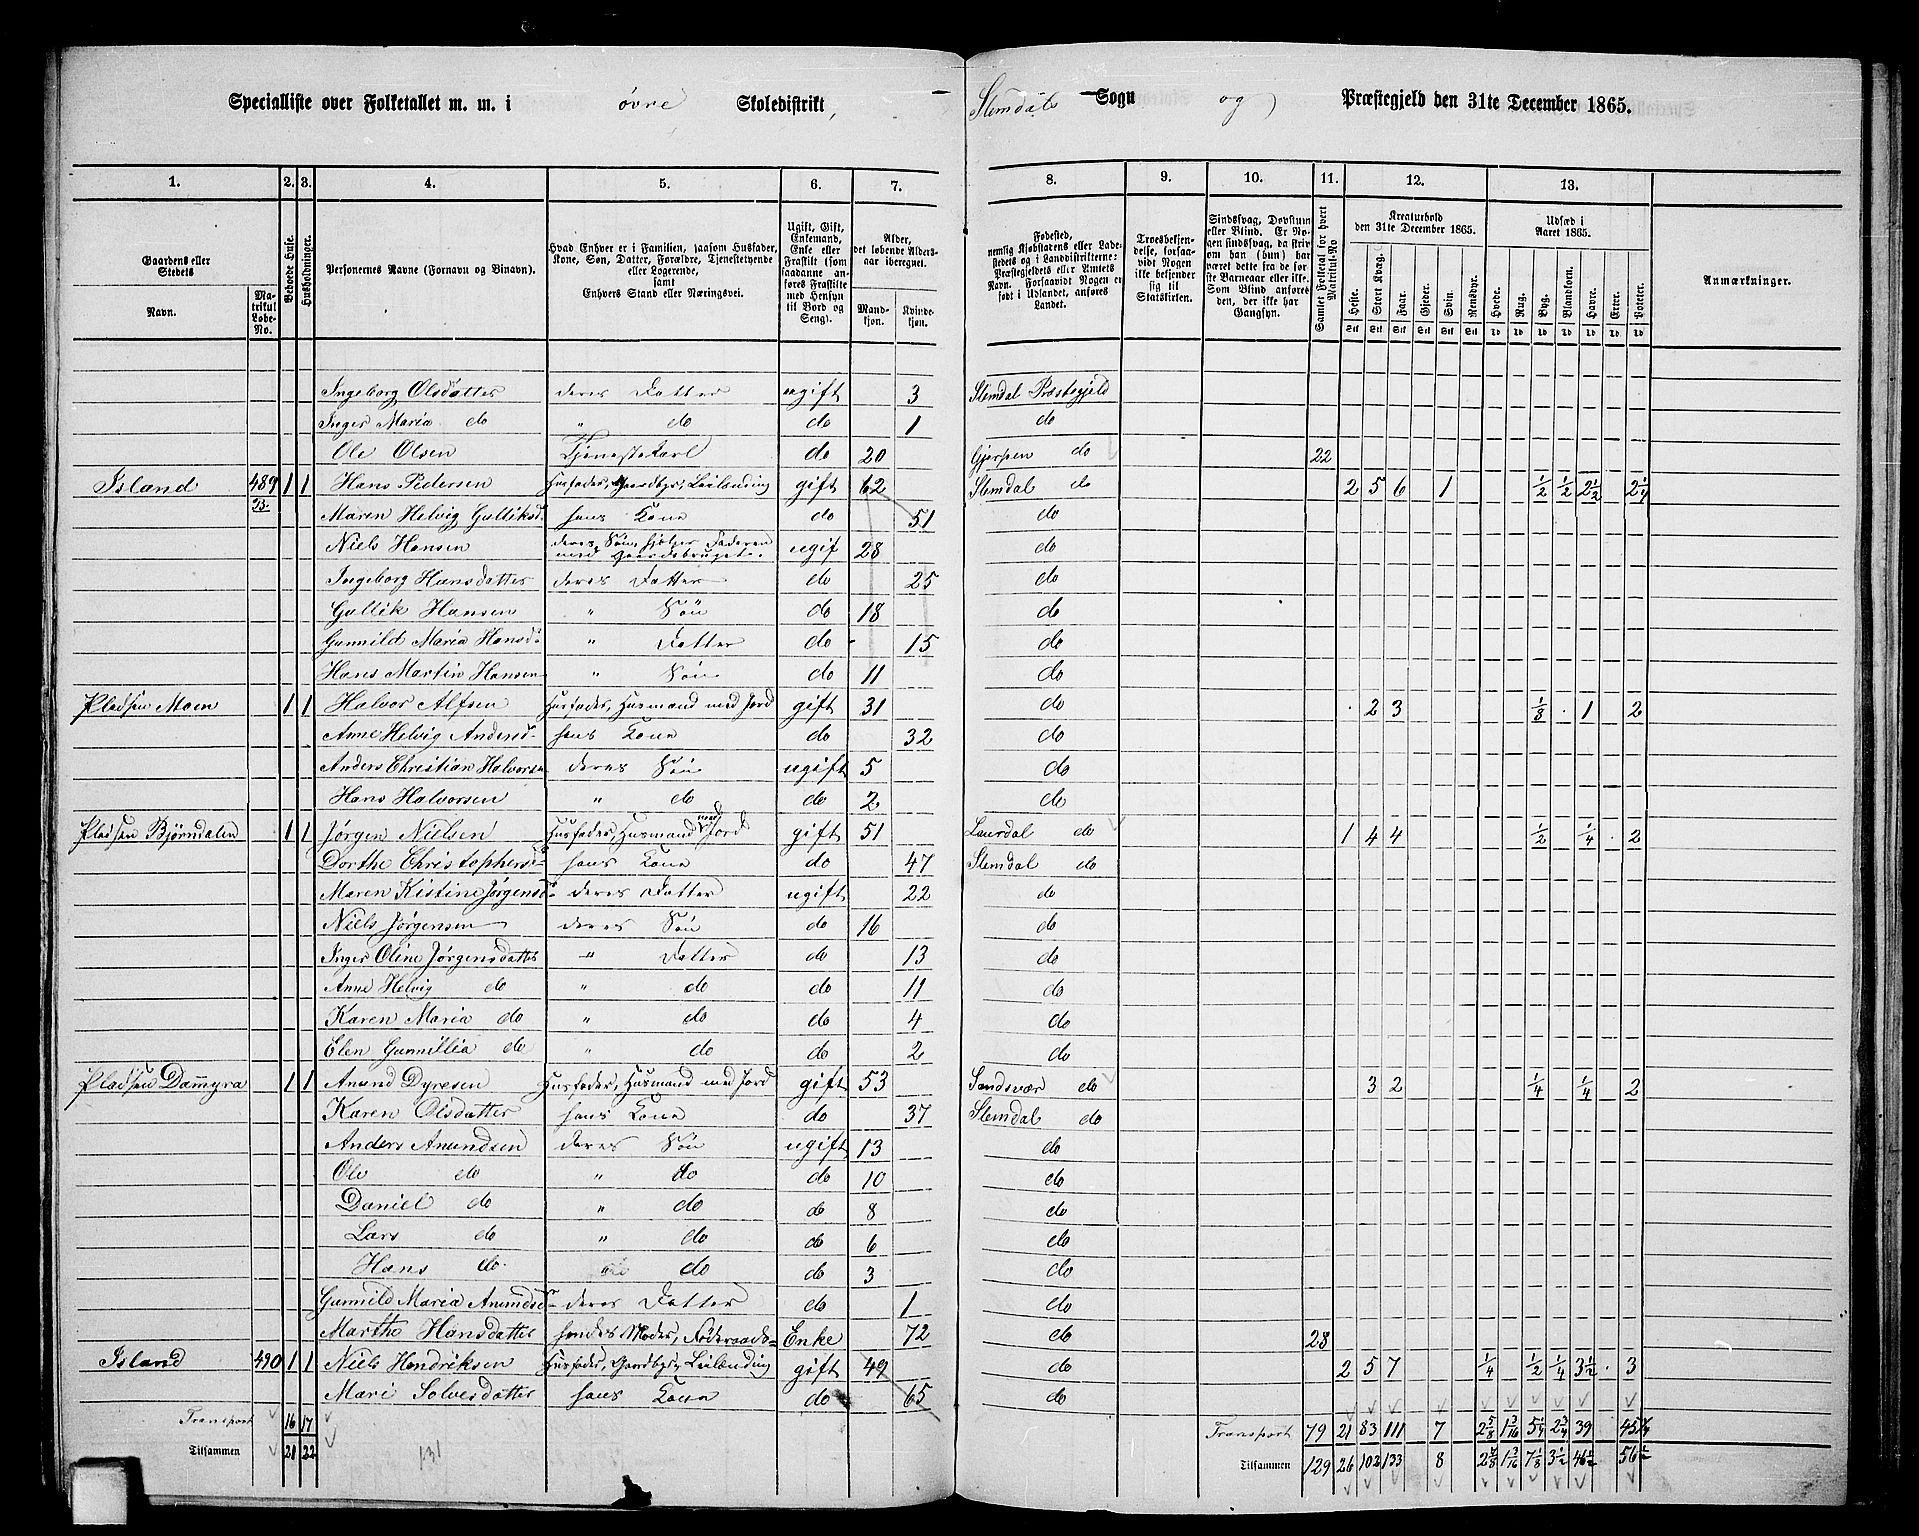 Specialliste over Folketallet m. m. i øvre Skoledistrikt, Slemdals Sogn og Præstegjeld den 31te December 1865.
1. 2. 3. 4. 5. 6. 7. 8. 9. 10. 11. 12. 13.
Gaardens eller Stedets
Navn.
Matrikul Løbe-No.
Beboede Huse.
Husholdninger.
Personernes Navne (Fornavn og Binavn).
Hvad Enhver er i Familien, saasom Husfader, Kone, Søn, Datter, Forældre, Tjenestetyende eller Logerende, samt Enhvers Stand eller Næringsvei.
Ugift, Gift, Enkemand, Enke eller Fraskilt (som saadanne anføres Fraskilte med Hensyn til Bord og Seng).
Alder, det løbende Aldersaar iberegnet.
Mandkjøn. Kvindekjøn.
Fødested, nemlig Kjøbstadens eller Ladestedets og i Landdistrikterne: Præstegjeldets eller Amtets Navn. Forsaavidt Nogen er født i Udlandet, anføres Landet.
Troesbekjendelse, forsaavidt Nogen ikke bekjender sig til Statskirken.
Sindssvag, Døvstum eller Blind. Er Nogen sindssvag, da skriv om han (hun) har været dette fra de første Barneaar eller ikke. Som Blind anføres den, der ikke har Gangsyn.
Samlet Folketal for hvert Matrikul-No
Kreaturhold den 31te December 1865.
Heste. Stort Kvæg. Faar. Gjeder. Svin. Rensdyr.
Udsæd i Aaret 1865.
Hvede. Rug. Byg. Blandkorn. Havre. Erter. Poteter.
Anmærkninger.
Ingeborg Olsdatter deres Datter ugift 3 Slemdal Præstegjeld
Inger Maria do " do do 1 do
Ole Olsen Tjenestekarl do 20 Gjerpen do 22
Island 489 1 1 Hans Pedersen Husfader, Gaardbr, Leilending gift 62 Slemdal do 2 5 6 1 1/2 1/2 2 1/2 2 1/4
Maren Helvig Gulliksd. hans Kone do 51 do
Niels Hansen deres Søn, hjelper Faderen med Gaardsbruget ugif 28 do
Ingeborg Hansdatter deres Datter do 25 do
Gullik Hansen " Søn do 18 do
Gunnild Maria Hansd. " Datter do 15 do
Hans Martin Hansen " Søn do 11 do
Pladsen Moen 1 1 Halvor Alfsen Husfader, Husmand med Jord gift 31 do 2 3 1/8 1 2
Anne Helvig Andersd. hans Kone do 32 do
Anders Christian Halvorsen deres Søn ugift 5 do
Hans Halvorsen " do do 2 do
Pladsen Bjørndalen 1 1 Jørgen Nielsen Husfader, Husmand med Jord gift 51 Laurdal do 1 4 4 1/2 1/4 2
Dorthe Christophersd. hans Kone do 47 Slemdal do
Maren Kistine Jørgensd. deres Datter ugift 22 do
Niels Jørgensen deres Søn do 16 do
Inger Oline Jørgensdatter " Datter do 13 do
Anne Helvig do " do do 11 do
Karen Maria do " do do 4 do
Elen Gunnillia do " do do 2 do
Pladsen Dammyra 1 1 Amund Dyresen Husfader, Husmand med Jord gift 53 Sandsvær do 3 2 1/4 1/4 2
Karen Olsdatter hans Kone do 37 Slemdal do
Anders Amundsen deres Søn ugift 13 do
Ole do " do do 10 do
Daniel do " do do 8 do
Lars do " do do 6 do
Hans do " do do 3 do
Gunnild Maria Amundsd. deres Datter do 1 do
Marthe Hansdatter hendes Moder, Føderaads- Enke 72 do 28
Island 490 1 1 Niels Hendriksen Husfader, Gardbr, Leilending gift 49 do 2 5 7 1/4 1/2 1/4 3 1/2 3
Mari Solvesdatter hans Kone do 65 do
Transport 16 17 Transport 79 21 83 111 7 2 5/8 1 3/16 5 1/4 2 3/4 39 45 1/4
Tilsammen 21 22 131 Tilsammen 129 26 102 133 8 2 7/8 1 3/16 7 1/8 3 1/2 46 1/2 56 1/2